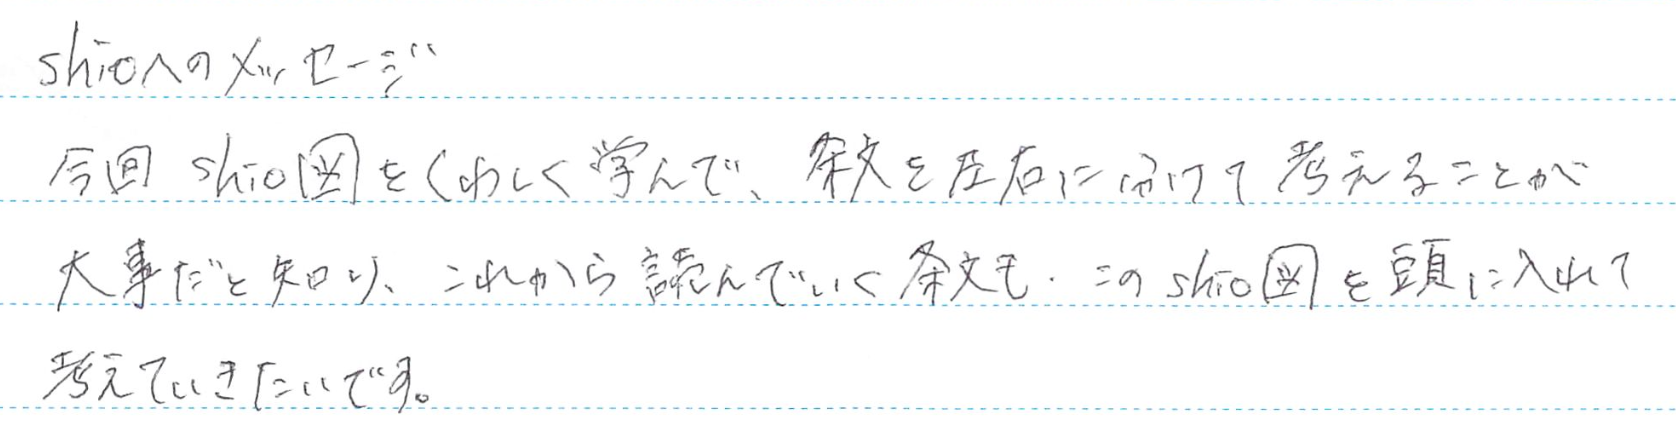 shioへのメッセージ
今回 shio図をくわしく学んで、条文を左右にわけて考えることが
大事だと知り、これから読んでいく条文も、このshio図を頭に入れて
考えていきたいです。